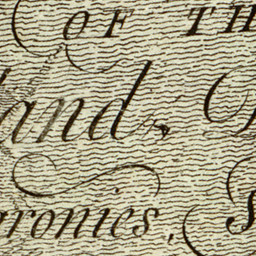 OF TH
and,
ronies,